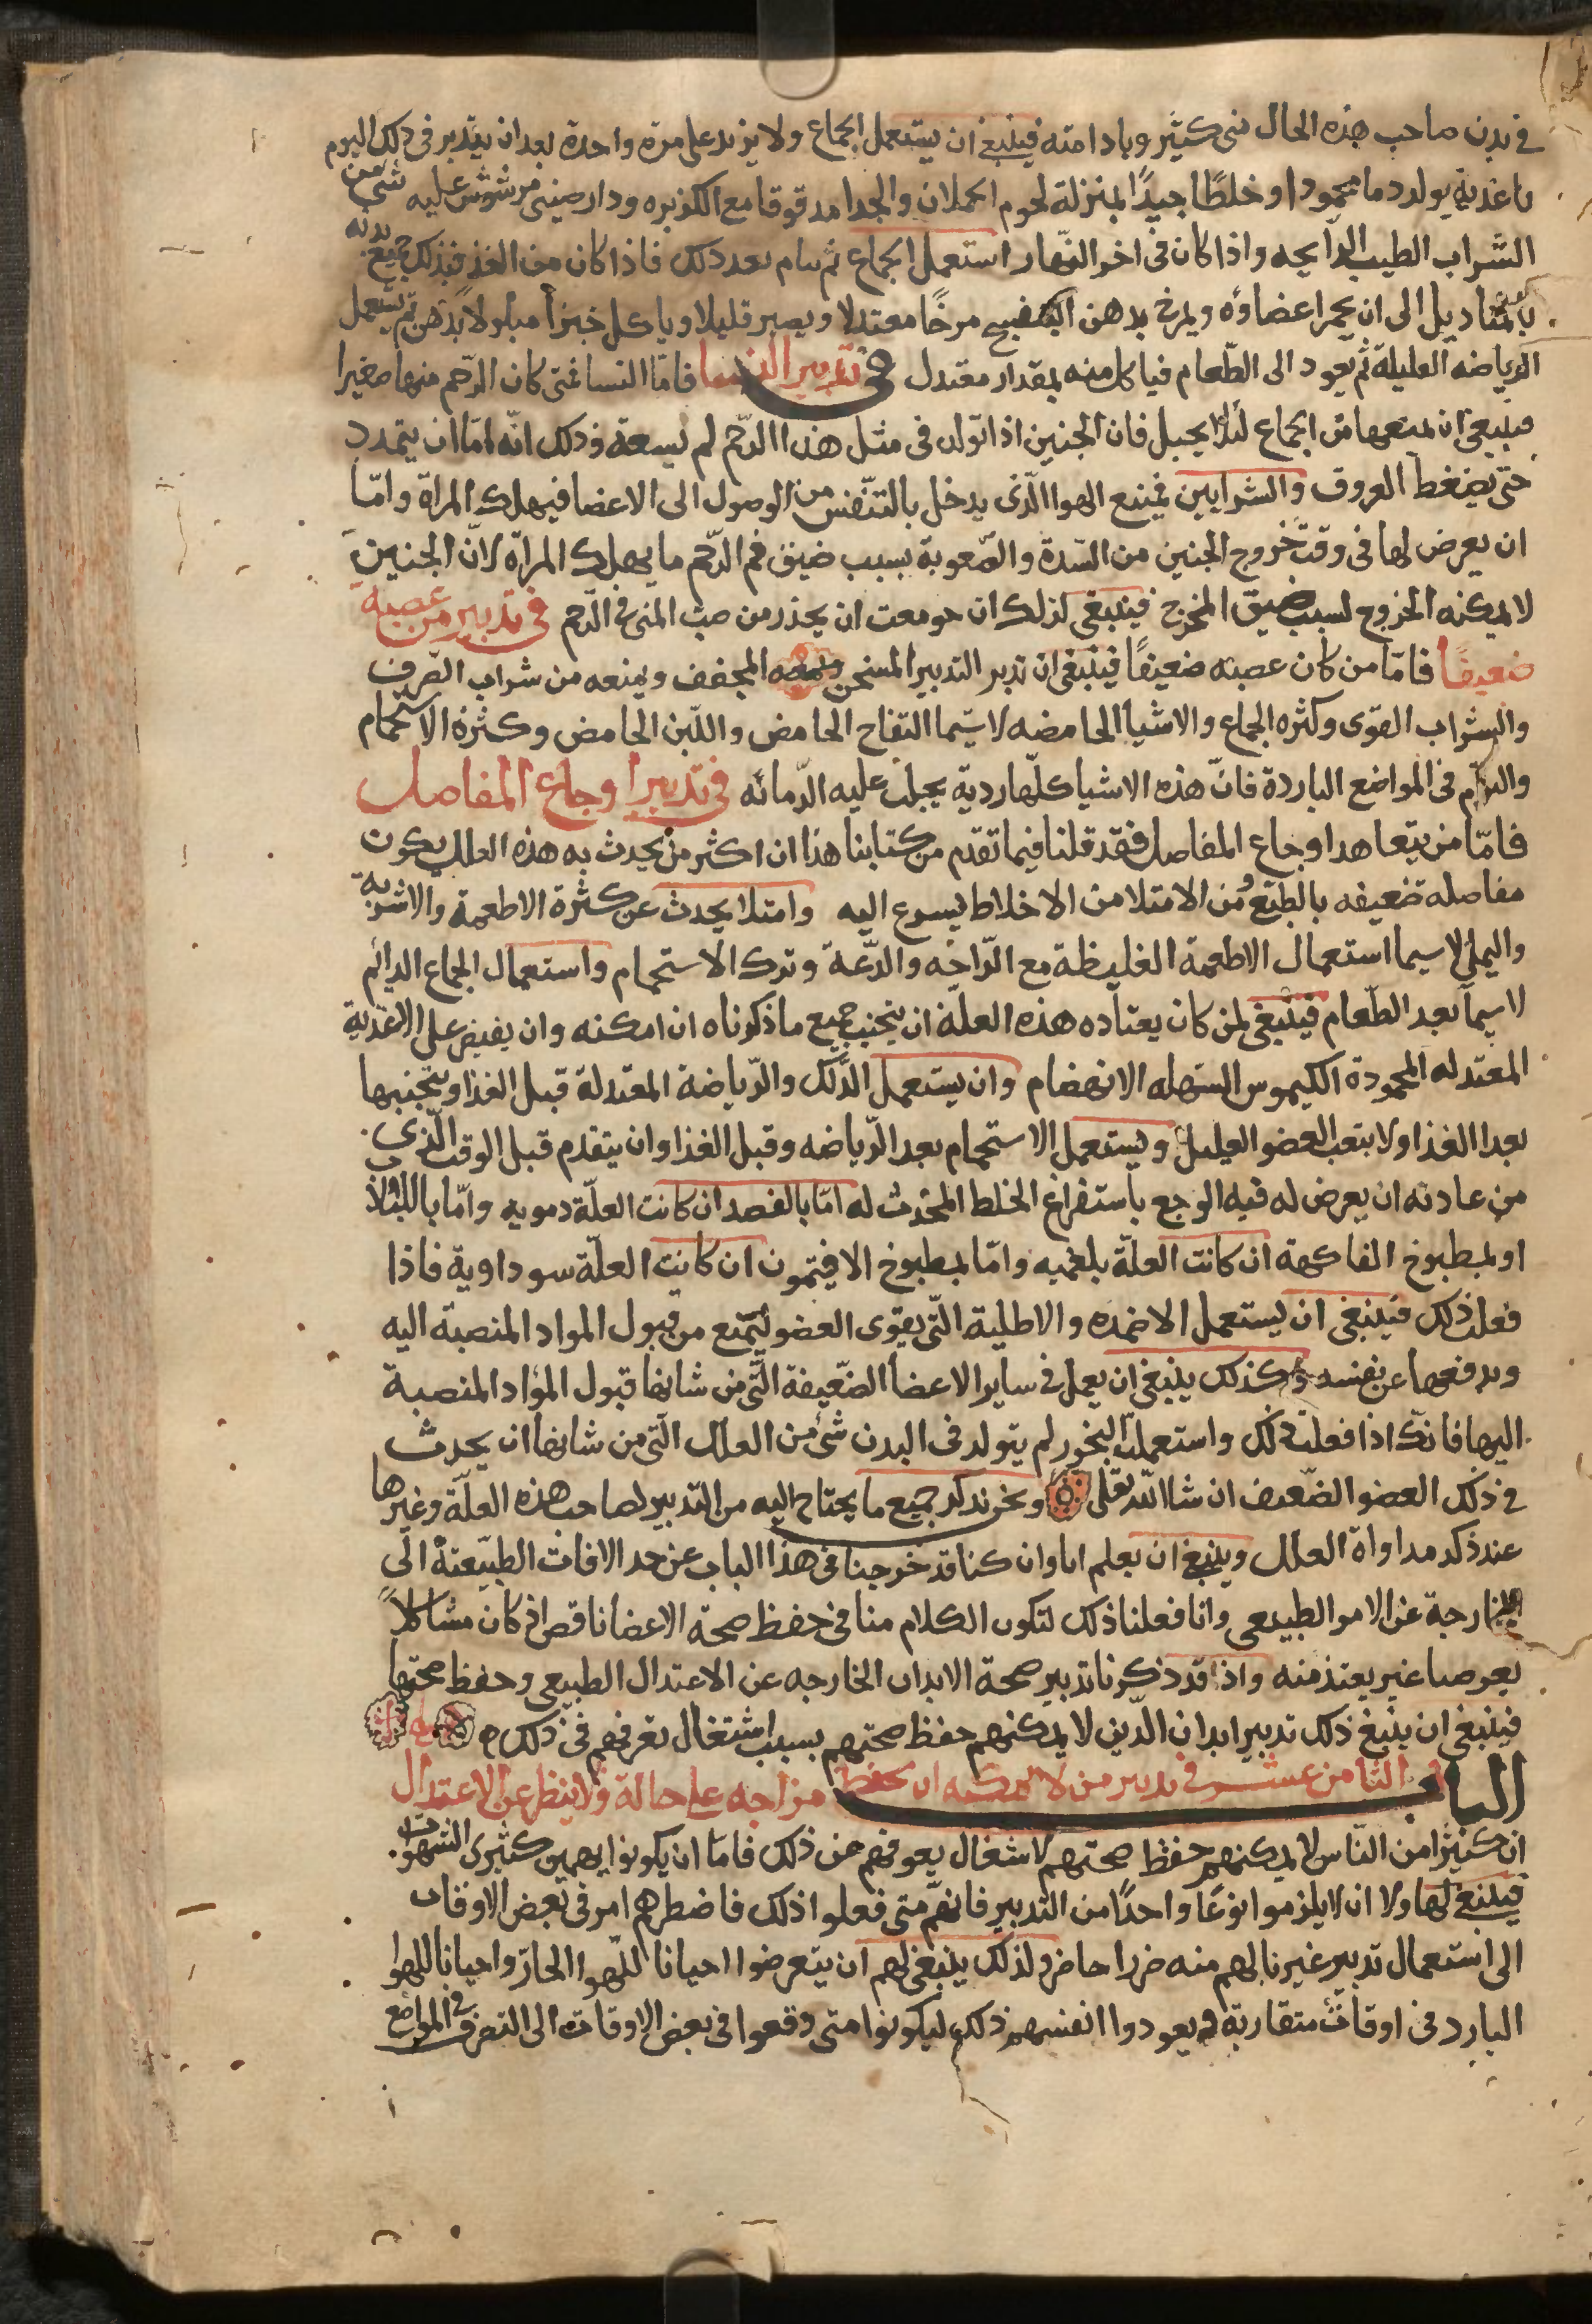 في بدن صاحب هذه الحال شي كثير وبادامته فينبغي ان يستعمل الجماع ولا يزيد على مرة واحدة بعد ان يتدبر في ذلك اليوم
باغذية يولد دما محمودا وخلطًا جيدًا بمنزلة لحوم الحملان والجدا مدقوقا مع الكزبره ودارصيني مرشوش عليه شي من
الشراب الطيب الرايحه واذا كان في اخر النهار استعمل الجماع ثم ينام بعد ذلك فاذا كان من الغد فيدلك جميع بدنه
بالمناديل الى ان يحمر اعضاؤه ويمرخ بدهن البنفسج مرخًا معتدلا ويصبر قليلا وياكل خبزاً مبلولا ثم يستعمل
الرياضه القليلة ثم يعود الى الطعام فياكل منه بمقدار معتدل في تدبير النسا فامّا النسا فمتى كان الرّحم منها صغيرا
فينبغي ان يمنعها من الجماع لئلا يحبل فان الجنين اذا تولد في مثل هذا الرّحم لم يسعه وذلك انّه امّا ان يتمدد
حتى يضغط العروق والشرايين فيمنع الهوا الّذي يدخل بالتنفس من الوصول الى الاعضا فيهلك المراة وامّا
ان يعرض لها في وقت خروج الجنين من الشدة والصّعوبة بسبب ضيق فم الرّحم ما يهلك المراة لانّ الجنين
لا يمكنه الخروج لسبب ضيق المخرج فينبغي لذلك ان جومعت ان يحذر من صب المني في الرّحم في تدبير من عصبه
ضعيفًا فامّا من كان عصبه ضعيفًا فينبغي ان تدبر التدبير المسخن المجفف ويمنعه من شراب الصّرف
والشراب القوى وكثره الجماع والاشيا الحامضه لا سيّما التفاح الحامض واللّبن الحامض وكثرة الاستحمام
والنوم في المواضع الباردة فانّ هذه الاشيا كلّها ردية يجلب عليه الزمانه في تدبير اوجاع المفاصل
فامّا من يتعاهد اوجاع المفاصل فقد قلنا فيما تقدم من كتابنا هذا ان اكثر من يحدث به هذه العلل يكون
مفاصله ضعيفه بالطبع ومن الامتلا من الاخلاط يسرع اليه وامتلا يحدث عن كثرة الاطعمة والاشربة
لا سيما استعمال الاطعمة الغليظة مع الرّاحه والدّعة وترك الاستحمام واستعمال الجماع الدائم
لا سيما بعد الطّعام فينبغي لمن كان يعتاده هذه العلّة ان يتجنب جميع ما ذكرناه ان امكنه وان يقتصر على الاغذية
المعتدله المحمودة الكيموس السهله الانهضام وان يستعمل الدّلك والرّياضة المعتدلة قبل الغذا ويتجنبها
بعد الغذا ولا يتعب العضو العليل ويستعمل الاستحمام بعد الرّياضه وقبل الغذا وان يتقدم قبل الوقت الّذي
من عادته ان يعرض له فيه الوجع باستفراغ الخلط المحدث له امّا بالفصد ان كانت العلّة دمويه وامّا
او بمطبوخ الفاكهة ان كانت العلّة بلغميه وامّا بمطبوخ الافيتمون ان كانت العلّة سوداوية فاذا
فعلت ذلك فينبغي ان يستعمل الاضمده والاطلية الّتي يقوى العضو ليمتنع من قبول المواد المنصبة اليه
ويدفعها عن نفسه وكذلك ينبغي ان يعمل في ساير الاعضا الضّعيفة الّتي من شانها قبول المواد المنصبة
اليها فانّك اذا فعلت ذلك واستعملت لم يتولد في البدن شي من العلل الّتي من شانها ان يحدث
في ذلك العضو الضّعيف ان شا الله تعلى ونحن نذكر جميع ما يحتاج اليه من التدبير لصاحب هذه العلّة وغيرها
عند ذكر مداواة العلل وينبغي ان يعلم انا وان كنا قد خرجنا في هذا الباب عن حد الافات الطبّيعتة الى
الخارجة عن الامور الطبيعى وانا فعلنا ذلك لتكون الكلام منا في حفظ صحة الاعضا ناقص اذ كان
واذ قد ذكرنا تدبير صحة الابدان الخارجه عن الاعتدال الطبيعي وحفظ صحتها
فينبغي ان يتبع ذلك تدبير ابدان الّذين لا يمكنهم حفظ صحتهم بسبب اشتغال تعرفهم في ذلك
الباب الثامن عشر في تدبير من لا يمكنه ان يحفظ مزاجه على حالة ولا ينظر عن الاعتدال
ان كثيرا من النّاس لا يمكنهم حفظ صحتهم لاشغال يعوقهم عن ذلك فاما ان يكونوا
فينبغي لها ولا ان لا يلزموا نوعًا واحدًا من التدبير فانّهم متى فعلوا ذلك فاضطرهم امر في بعض الاوقات
الى استعمال تدبير غير نالهم منه ضررا حاضر ولذلك ينبغي لهم ان يتعرضوا احيانا للهوا الحارّ واحيانا للهوا
البارد في اوقات متقاربة ويعودوا انفسهم ذلك ليكونوا متى وقعوا في بعض الاوقات الى التصرف في المواضع